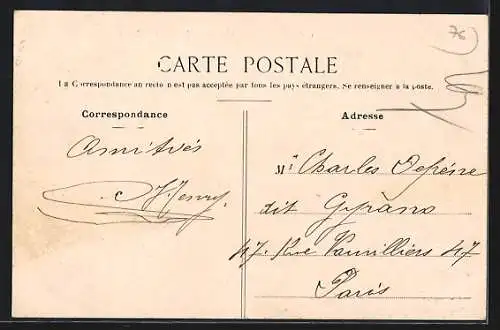 76
CARTE POSTALE
La Correspondance au recto n'est pas acceptée par tous les pays étrangers. Se renseigner à la poste.
Correspondance
Amitiés
Henry
Adresse
Mr Charles
dit
47. Rue 47
Paris